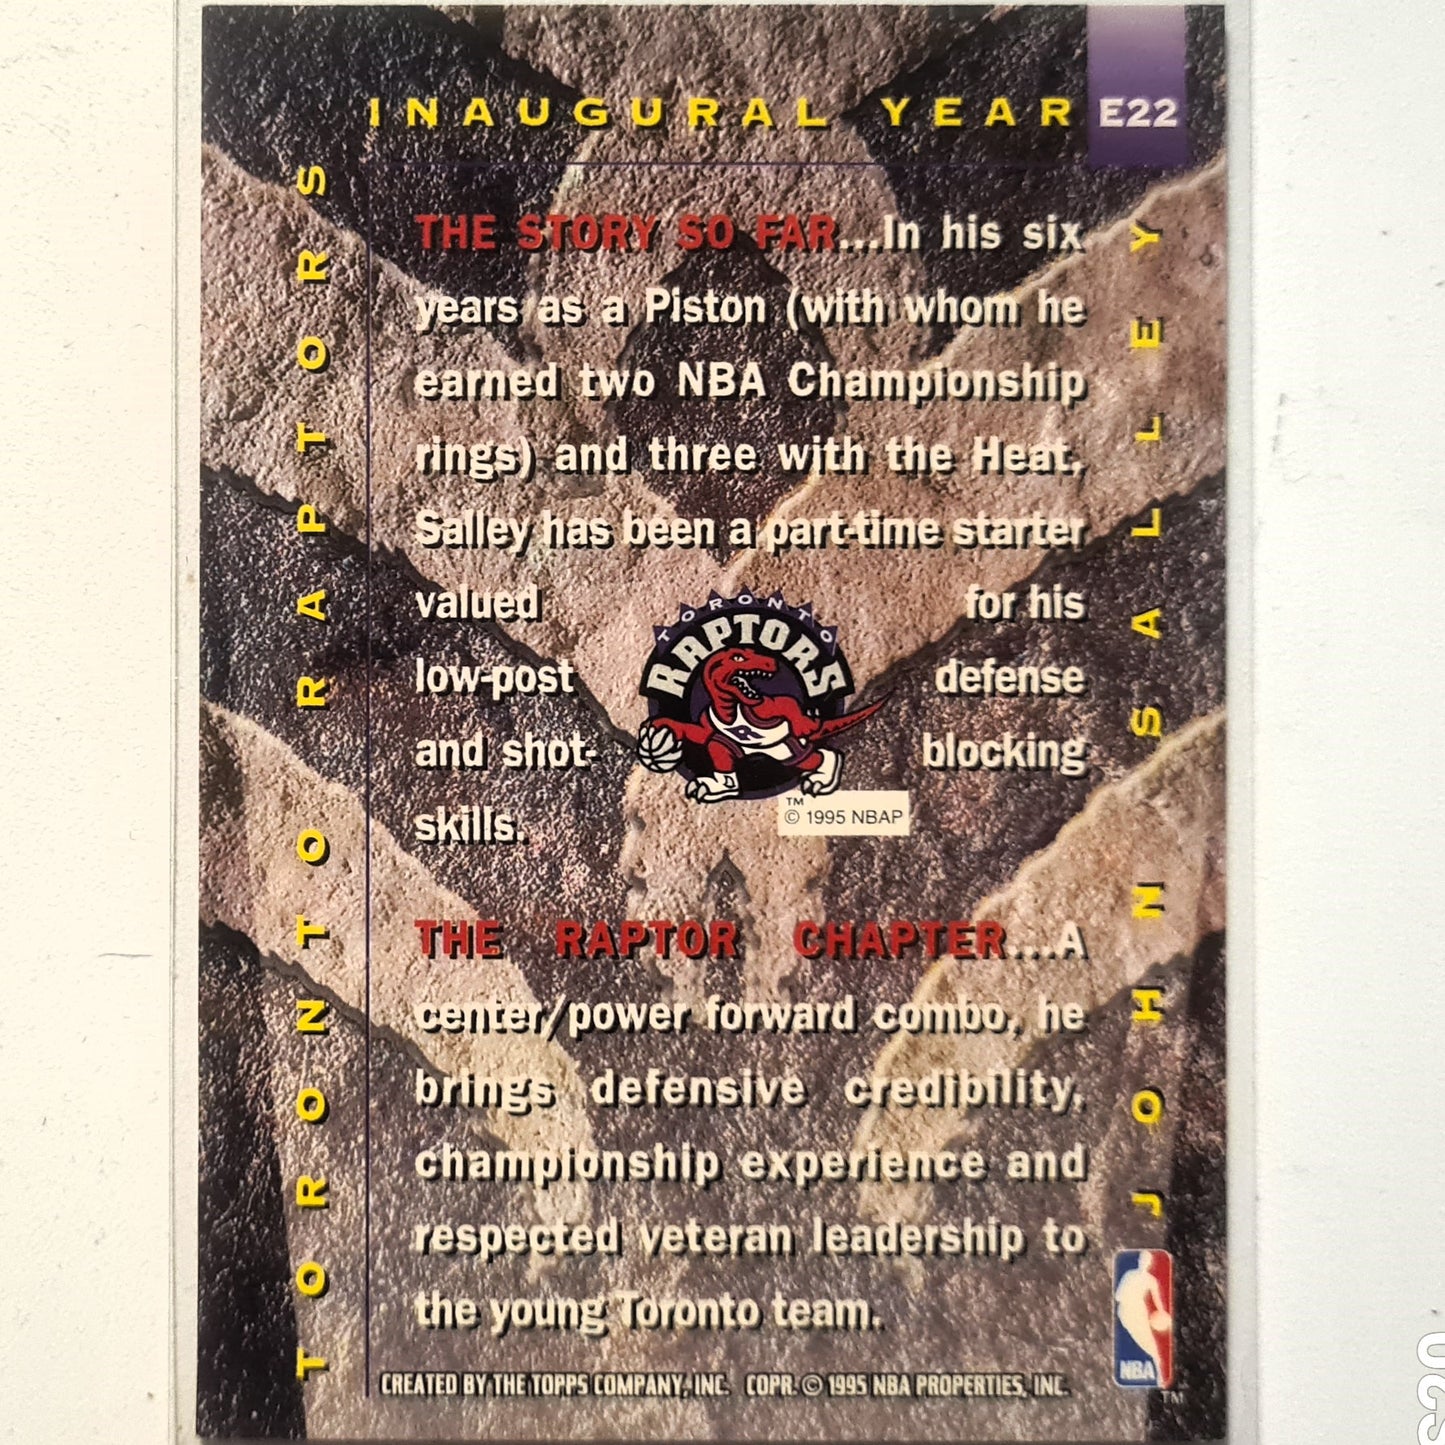 INAUGURAL YEAR E22
TORONTO RAPTORS
JOHN SALLEY
THE STORY SO FAR...In his six
years as a Piston (with whom he
earned two NBA Championship
rings) and three with the Heat,
Salley has been a part-time starter
valued for his
low-post defense
and shot- blocking
skills.
TORONTO
RAPTORS
TM
© 1995 NBAP
THE RAPTOR CHAPTER...A
center/power forward combo, he
brings defensive credibility,
championship experience and
respected veteran leadership to
the young Toronto team.
NBA
TM
CREATED BY THE TOPPS COMPANY, INC. COPR. © 1995 NBA PROPERTIES, INC.